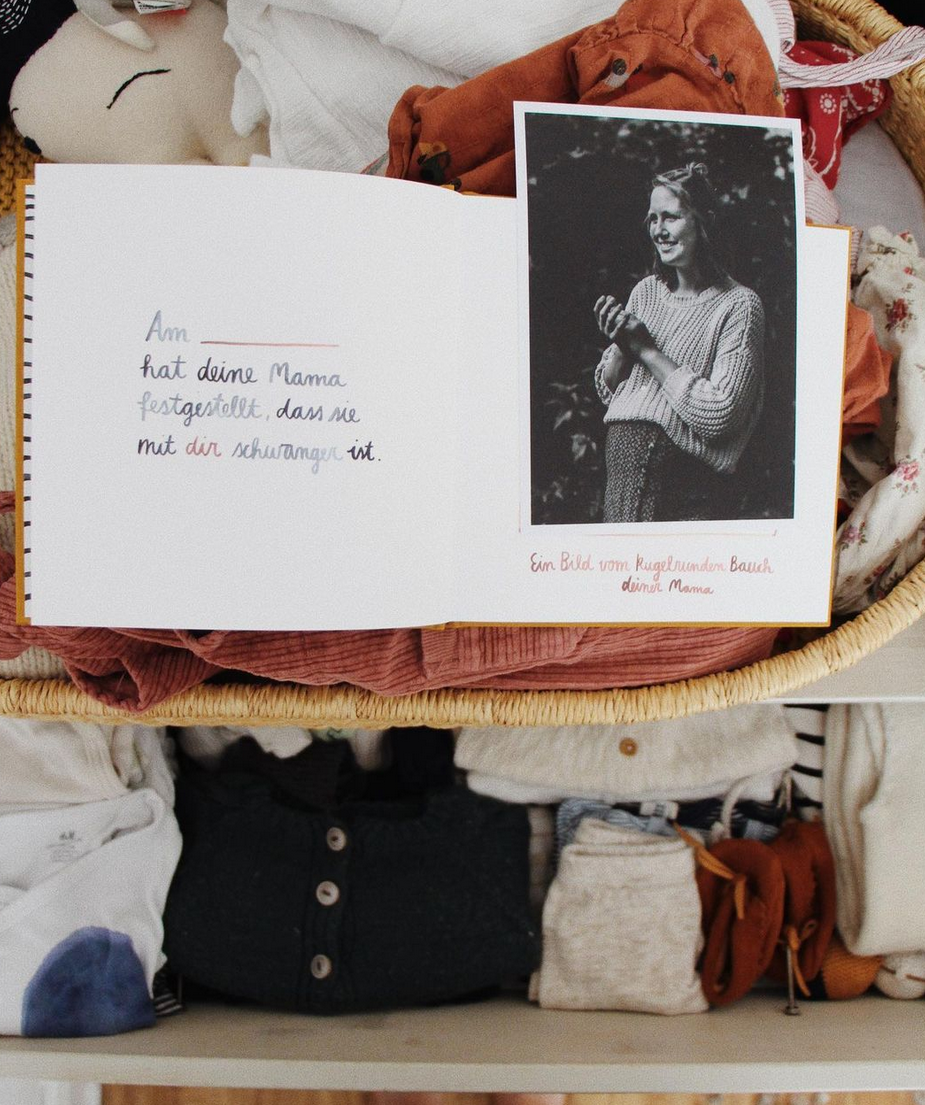 Am
hat deine Mama
festgestellt, dass sie
mit dir schwanger ist.
Ein Bild vom kugelrunden Bauch
deiner Mama